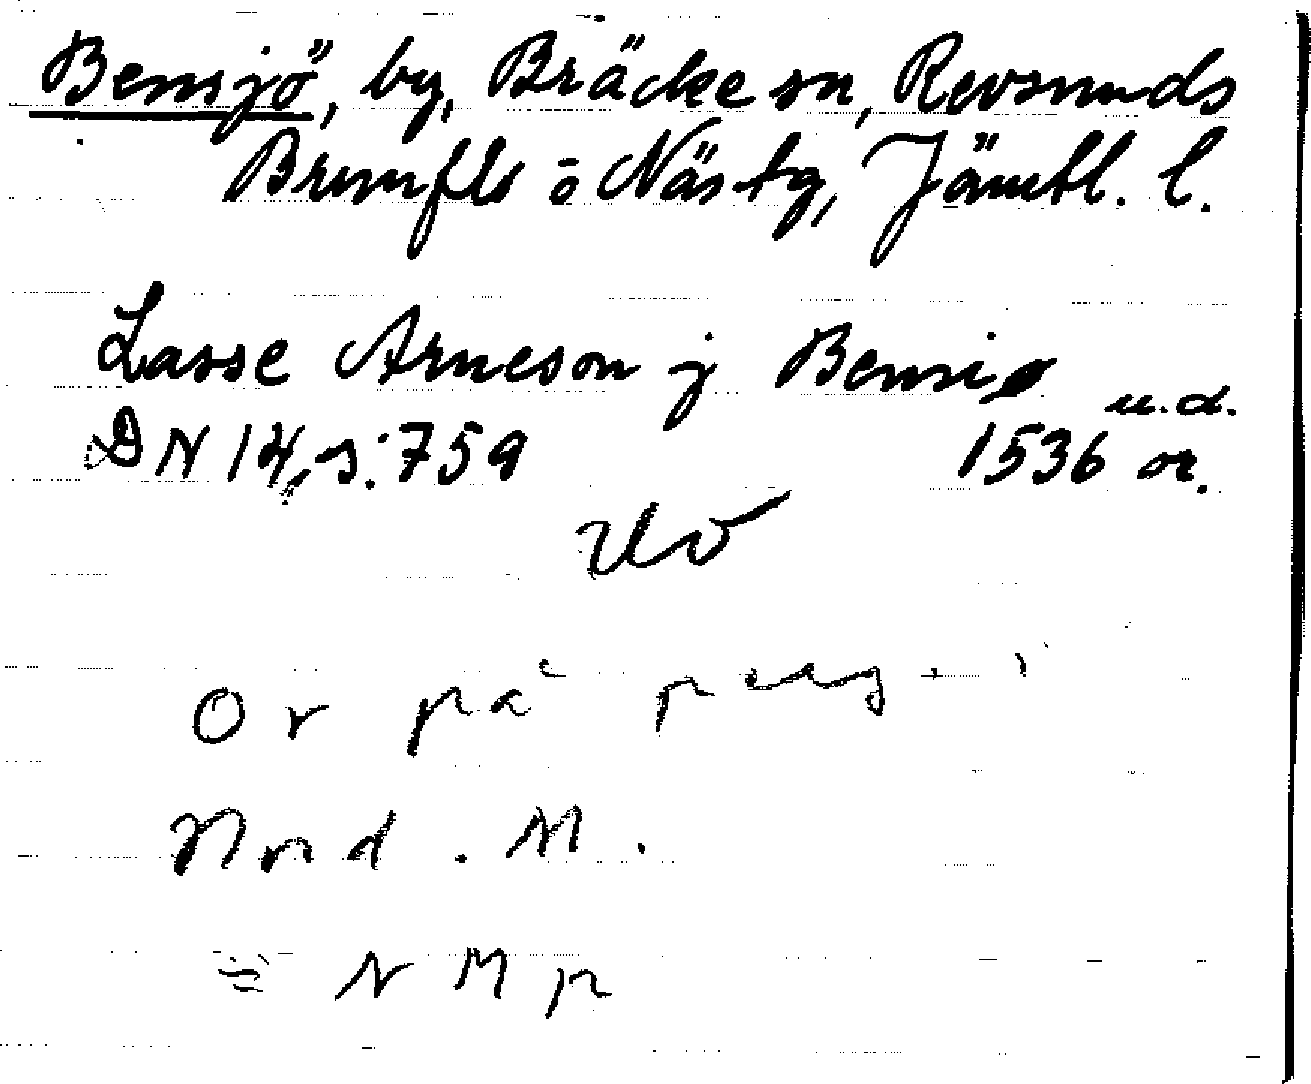 Bensjö, by, Bräcke sn, Revsunds
Brunflo o Näs tg, Jämtl. l.
Lasse Arneson j Bensiø
u.d.
DN 14, s. 759 1536 or.
Or på perg i
Nord. M.
= N M p